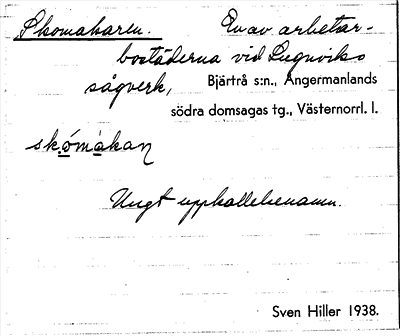 Skomakaren. En av arbetar-
bostäderna vid Lugnviks
sågverk, Bjärtrå s:n., Ångermanlands
södra domsagas tg., Västernorrl. l.
Ungt uppkallelsenamn.
Sven Hiller 1938.